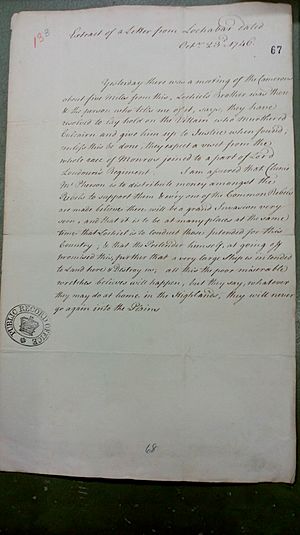 188
67
Extract of a Letter from Lochabar dated
Octr. 23d. 1746.
Yesterday there was a meeting of the Camerons
about five miles from this, Lochiels Brother was there
& the person who tells me of it, says, they have
resolved to lay hold on the Villain who Murthered
Culcairn and give him up to Justice when found,
unless this be done, they expect a visit from the
whole race of Monros joined to a part of Lord
Loudouns Regiment. I am assured that Clunie
McPherson is to distribute money amongst the
Rebels to support them & every one of the Common Rebels
are made believe there will be a grand Invasion very
soon, and that it is to be at many places at the same
time that Lochiel is to conduct those Intended for this
Country; & that the Pretender himself, at going off
promised this, further that a very large Ship is intended
to Land here & Destroy us; all this the poor miserable
wretches believes will happen, but they say, whatever
they may do at home in the Highlands, they will never
go again into the Plains
PUBLIC RECORD OFFICE
68